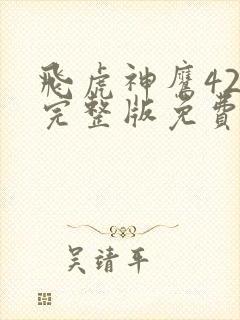 飛虎神鹰42
完整版免費
吴靖平